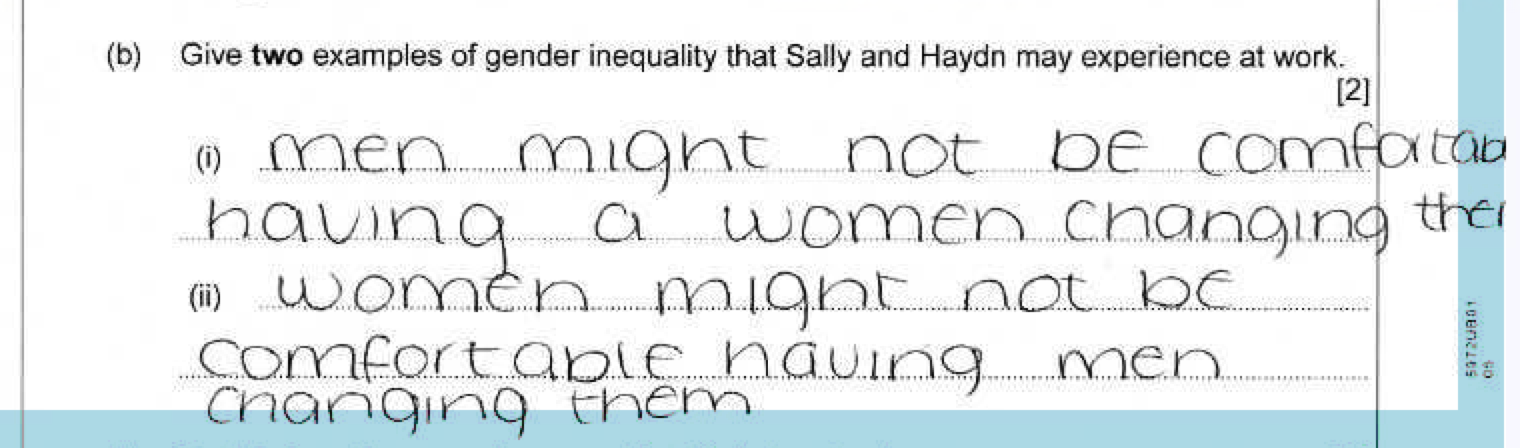 (b) Give two examples of gender inequality that Sally and Haydn may experience at work.
[2]
(i) men might not be comfortab
having a women changing ther
(ii) women might not be
comfortable having men
changing them